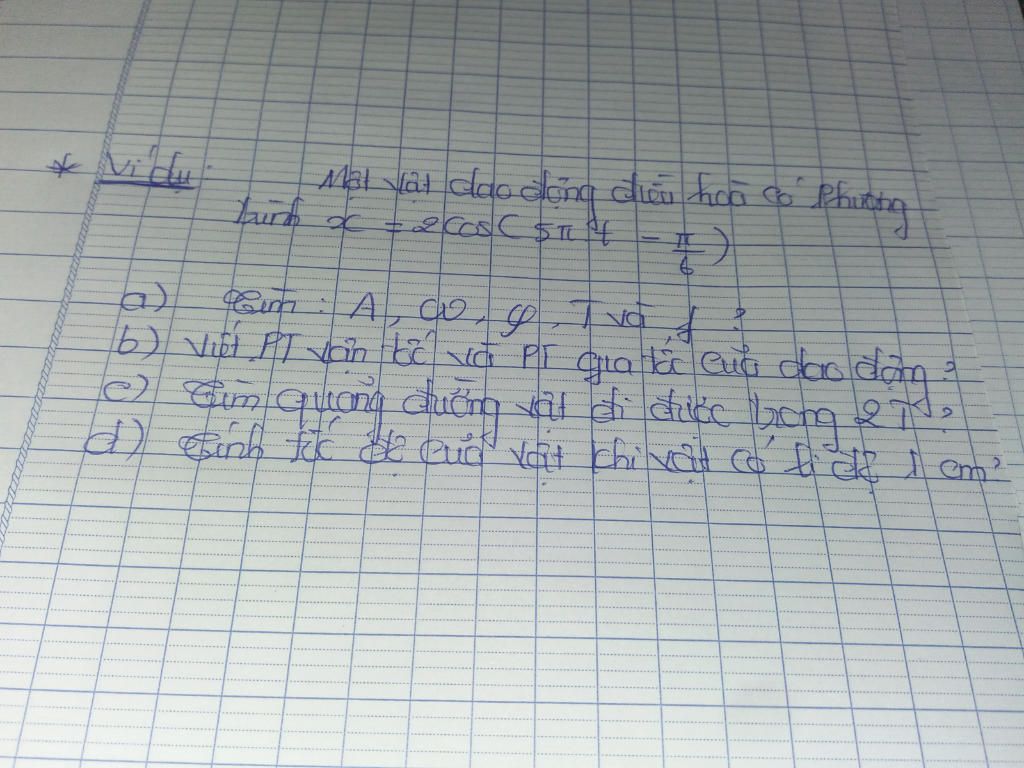 * Ví dụ: Một vật dao động điều hoà có Phương
trình x = 2cos(5πt - π/6)
a) Tìm: A, ω, φ, T và f?
b) Viết PT vận tốc và PT gia tốc của dao động?
c) Tìm quãng đường vật đi được trong 2T?
d) Tính tốc độ của vật khi vật có li độ 1 cm?